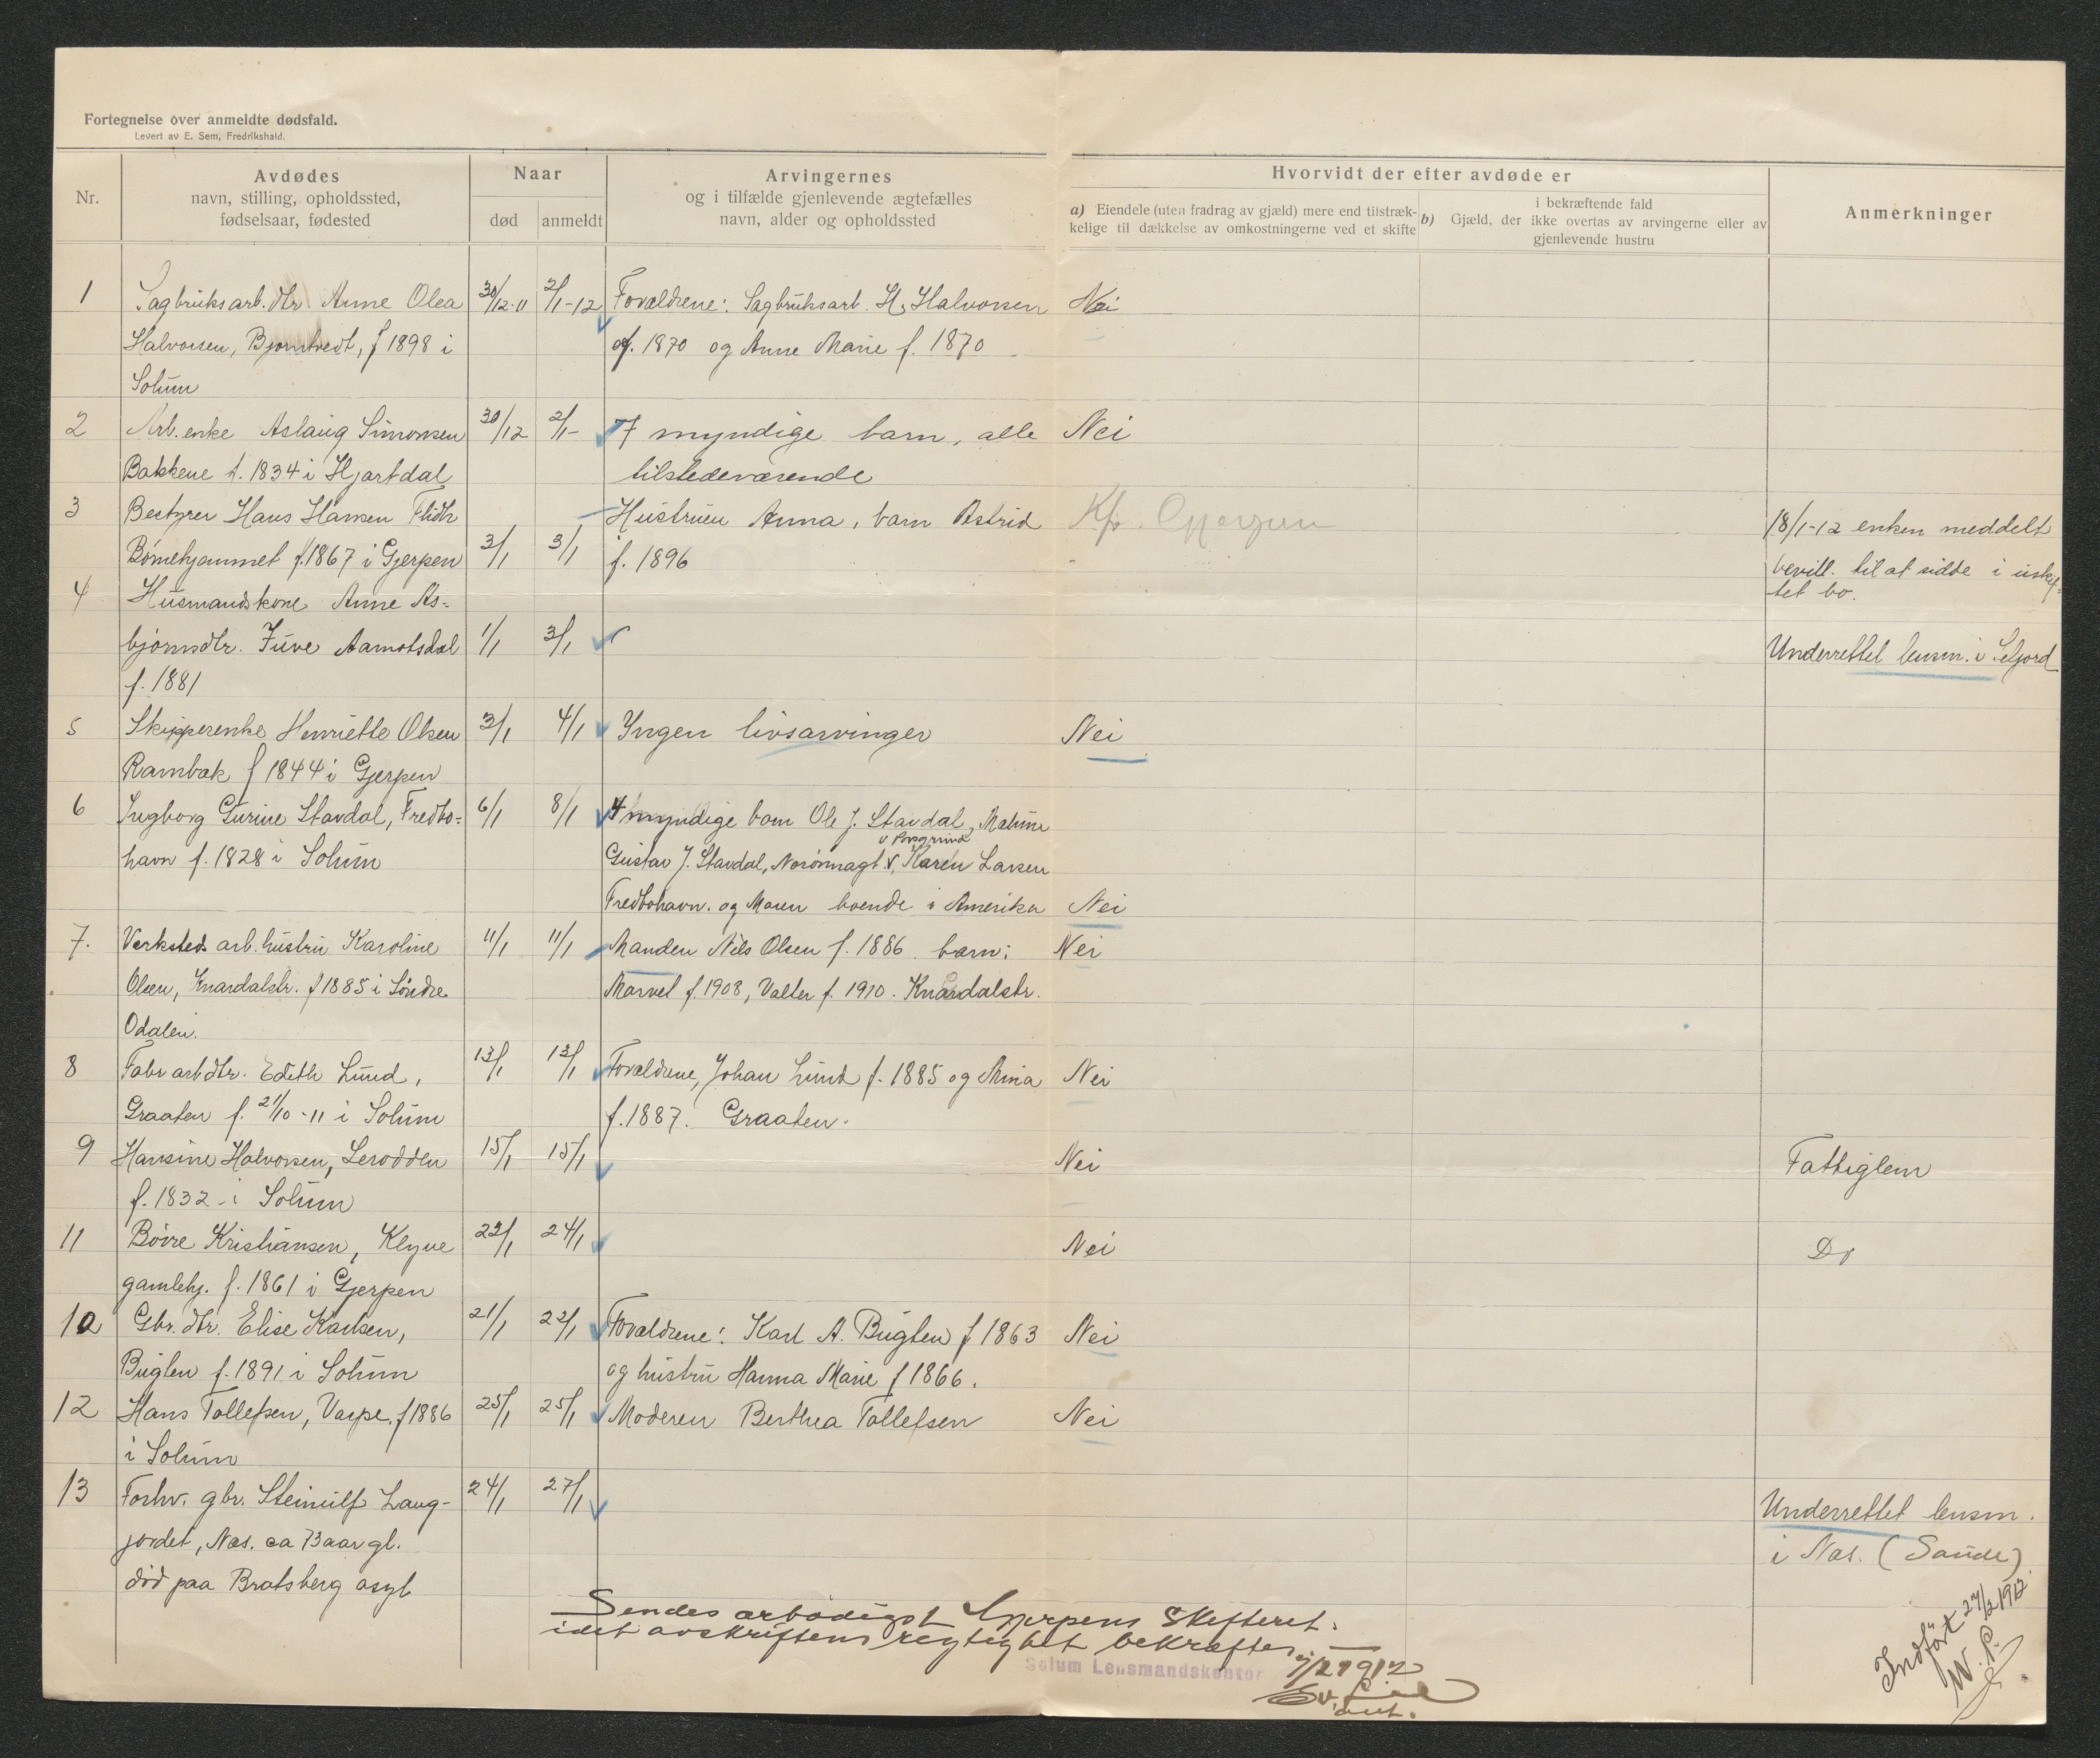 Fortegnelse over anmeldte dødsfald.
Levert av E. Sem, Fredrikshald.
Nr.
Avdødes
navn, stilling, opholdssted,
fødselsaar, fødested
Naar
død anmeldt
Arvingernes
og i tilfælde gjenlevende ægtefælles
navn, alder og opholdssted
Hvorvidt der efter avdøde er
a) Eiendele (uten fradrag av gjæld) mere end tilstræk-
kelige til dækkelse av omkostningerne ved et skifte
i bekræftende fald
b) Gjæld, der ikke overtas av arvingerne eller av
gjenlevende hustru
Anmerkninger
1 Sagbruksarb. dtr Anne Olea 30/12-11 2/1-12 Forældrene: Sagbruksarb. H. Halvorsen Nei
Halvorsen, Bjorntvedt, f 1898 i f. 1870 og Anne Marie f. 1870
Solum
2 Arb. enke Aslaug Simonsen 30/12 2/1- 7 myndige barn, alle Nei
Bakkene f. 1834 i Hjartdal tilstedeværende
3 Bestyrer Hans Hansen Flidtr Hustruen Anna, barn Astrid 18/1-12 enken meddelt
Børnehjemmet f. 1867 i Gjerpen 3/1 3/1 f. 1896 bevill. til at sidde i uskif-
tet bo.
4 Husmandskone Anne As-
bjørnsdtr. Juve Aamotsdal 1/1 3/1 Underrettet lensm. i Seljord
f. 1881
5 Skipperenke Henriette Olsen 3/1 4/1 Yngen livsarvinger Nei
Rambæk f 1844 i Gjerpen
6 Ingborg Gurine Stavdal, Fredbo- 6/1 8/1 4 myndige barn Ole J. Stavdal,
v Porsgrund
havn f. 1828 i Solum Gustav J. Stavdal, Karen Larsen
Fredbohavn. og Maren boende i Amerika Nei
7. Verksted arb. hustru Karoline 11/1 11/1 Manden Nils Olsen f. 1886. barn: Nei
Olsen, Knardalstr. f 1885 i Søndre Marvel f. 1908, Valter f. 1910. Knardalstr.
Odalen.
8 Fabr arb dtr. Edith Lund, 13/1 13/1 Forældrene, Johan Lund f. 1885 og Anna Nei
Graaten f. 21/10-11 i Solum f. 1887. Graaten.
9 Hansine Halvorsen, Lerodden 15/1 15/1 Nei Fattiglem
f. 1832 i Solum
11 Børre Kristiansen, Klyve 23/1 24/1 Nei Do
gamlehj. f. 1861 i Gjerpen
10 Gbr. dtr. Elise Karlsen, 21/1 22/1 Forældrene: Karl A. Bugten f 1863 Nei
Bugten f. 1891 i Solum og hustru Hanna Marie f 1866.
12 Hans Tollefsen, Varpe, f 1886 25/1 25/1 Moderen Berthea Tollefsen Nei
i Solum
13 Forhv. gbr. Steinulf Laug- 24/1 27/1 Underrettet lensm.
jordet, Næs. ca 73 aar gl. i Næs. (Saude)
død paa Bratsberg asyl
Sendes ærbødigst Gjerpens Skifteret.
idet avskriftens rigtighet bekræftes. —
Solum Lensmandskontor /2 1912
Indført 27/2 1912